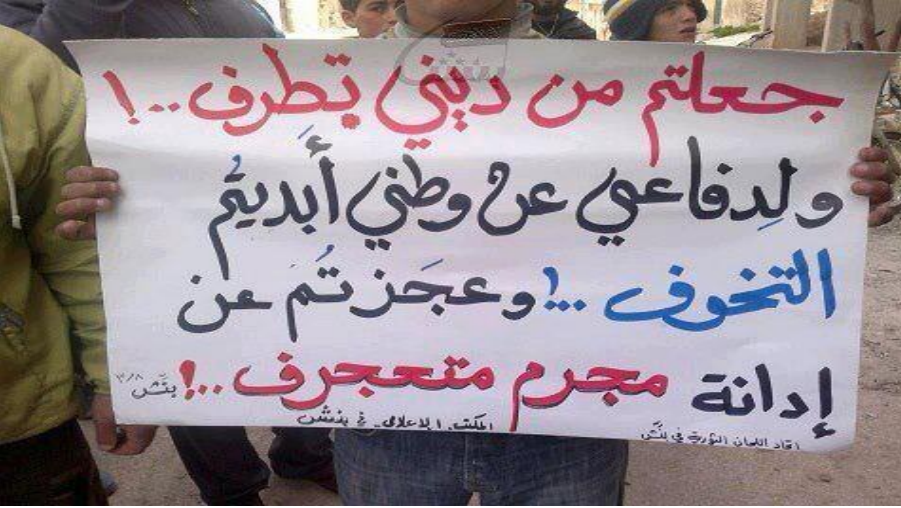 جعلتم من ديني تطرف..!
ولِدفاعي عن وطني أَبديتُم
التخوف ...! وعجَزتُم عن
إدانة مجرم متعجرف..!
بنّش ٣/٨
المكتب الاعلامي في بنش
اتحاد اللجان الثورية في بنّش